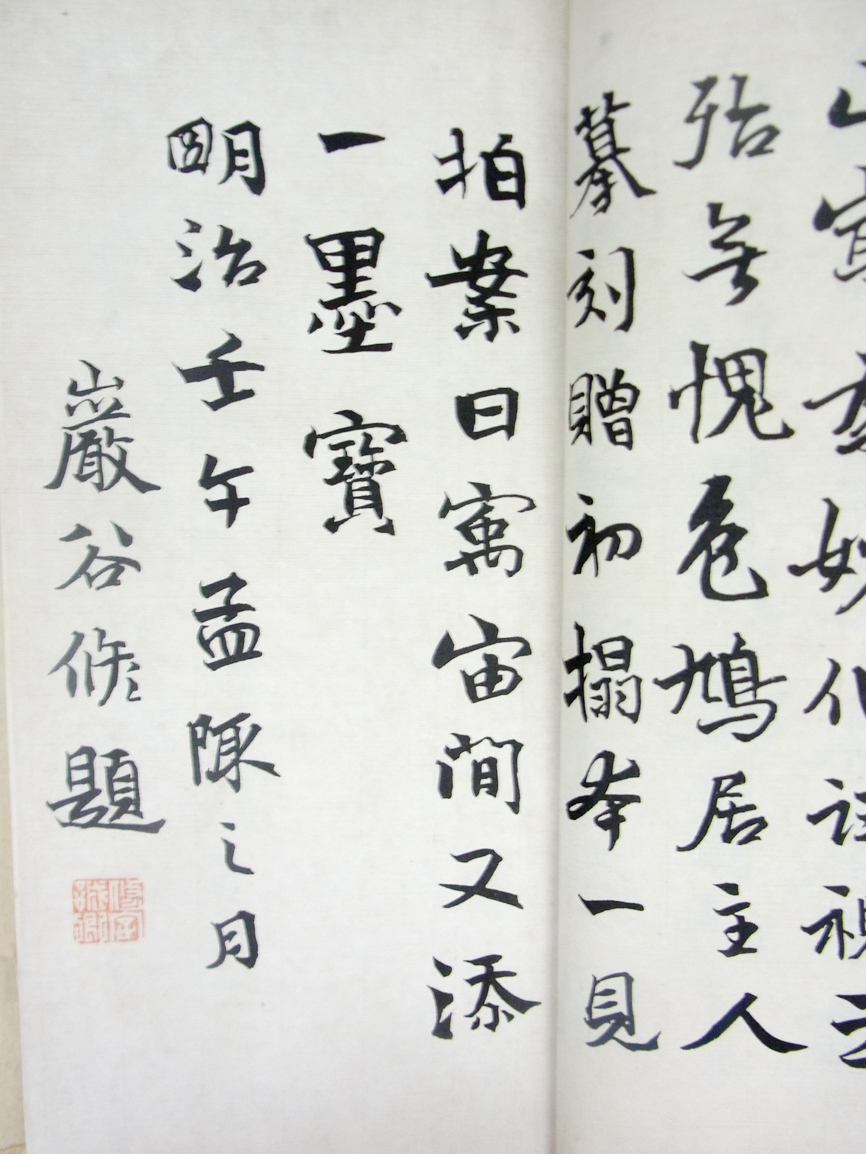 妙
殆無愧色鳩居主人
摹刻贈初搨本一見
拍案曰寓宙間又添
一墨寶
明治壬午孟陬之月
巖谷修題
修字誠卿